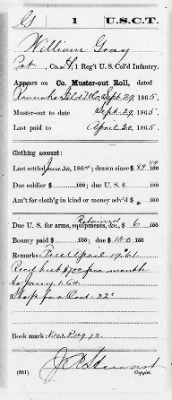 G | 1 | U.S.C.T.
William Gray
Pvt., Co. H, 1 Reg't U. S. Col'd Infantry.
Appears on Co. Muster-out Roll, dated
Roanoke Isld N.C. Sept. 29, 1865.
Muster-out to date Sept. 29, 1865.
Last paid to April 30, 1865.
Clothing account:
Last settled June 30, 1864; drawn since $ 100
Due soldier $ 100; due U. S. $ 100
Am't for cloth'g in kind or money adv'd $ 100
Due U. S. for arms, equipments, &c., $ 6 100
Retained
Bounty paid $ 100; due $ 100 100
Remarks: Free April 19. 61
Recd $7.00 per month
to Jany 1. 64.
Stop for
Book mark:
(861) Copyist.